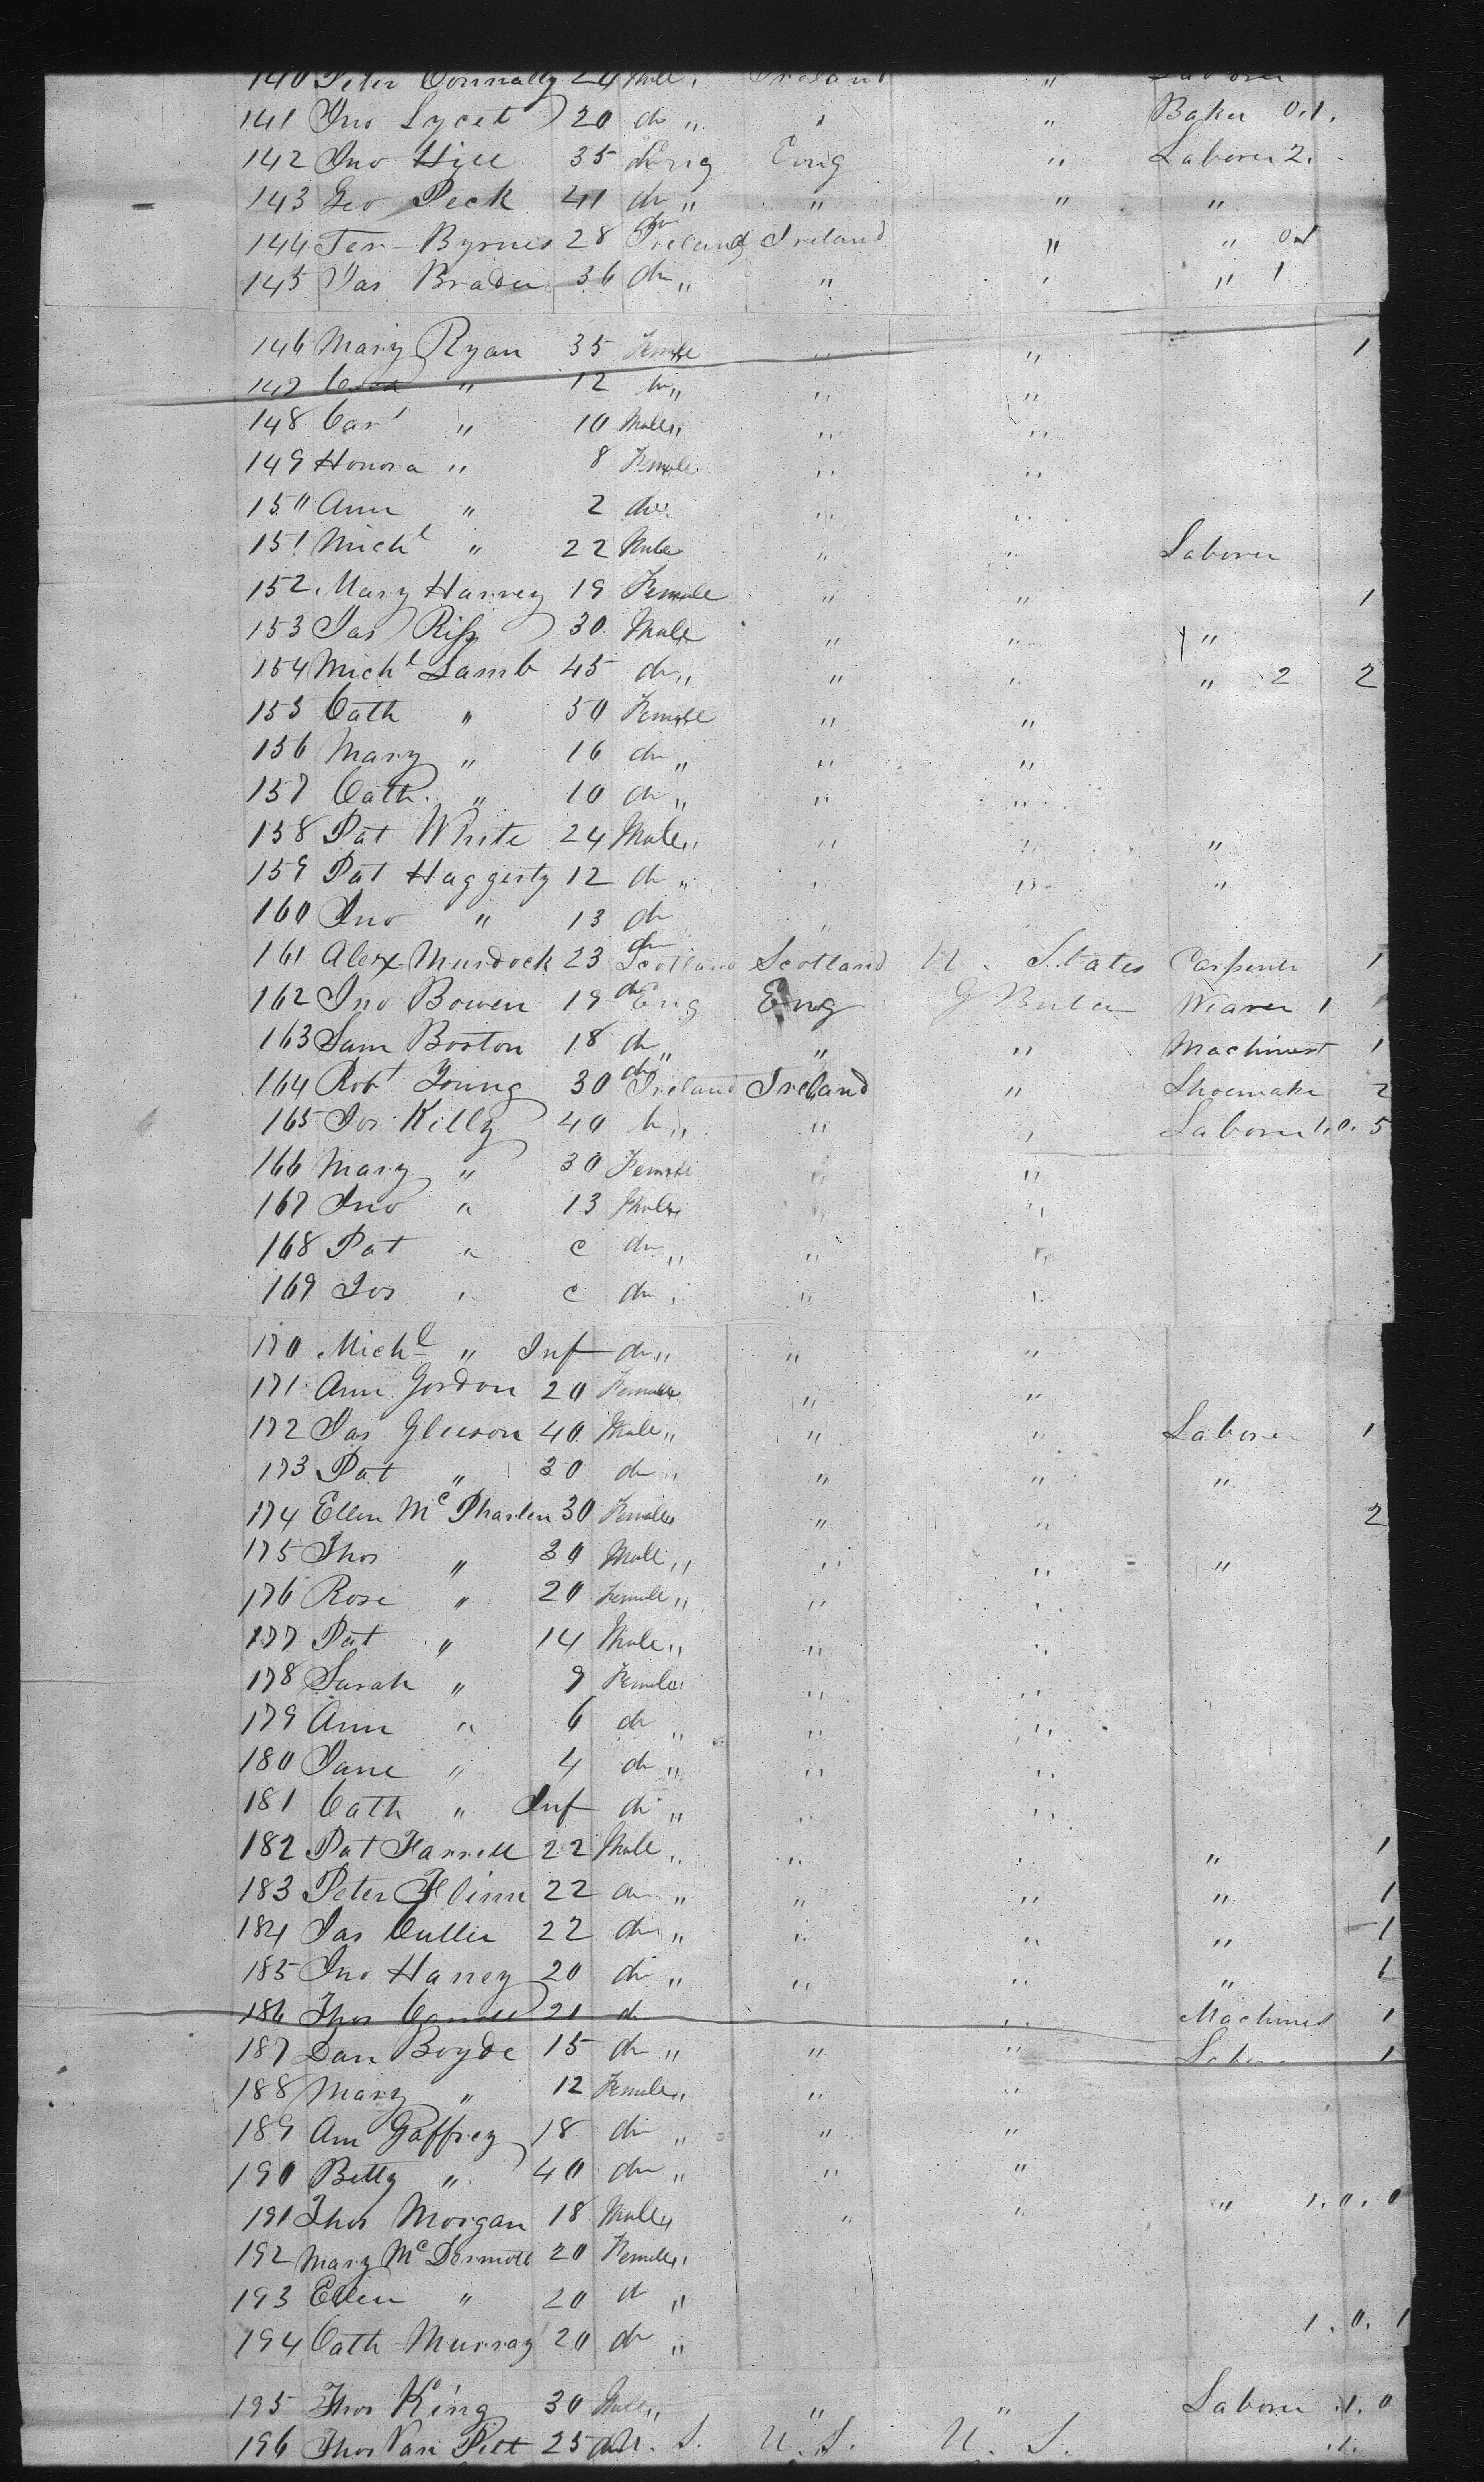 140 Peter Connally 24 Male " Ireland " Laborer
141 Jno Lycet 20 do " " " Baker 0.1.
142 Jno Hill 35 do Eng Eng " Laborer 2.
143 Geo Peck 41 do " " " "
144 Ter- Byrnes 28 do Ireland Ireland " " 0.1
145 Jas Braden 36 do " " " " 1
146 Mary Ryan 35 Female " " 1
147 " 12 do " " "
148 Car " 10 Male " " "
149 Honora " 8 Female " "
150 Ann " 2 do " " "
151 Michl " 22 Male " " Laborer
152 Mary Harvey 19 Female " " 1
153 Jas 30 Male " " "
154 Michl Lamb 45 do " " " " 2 2
155 Cath " 50 Female " "
156 Mary " 16 do " " "
157 Cath. " 10 do " " "
158 Pat White 24 Male " " " "
159 Pat Haggerty 12 do " " " "
160 Jno " 13 do " "
161 Alex Murdock 23 do Scotland Scotland U. States Carpenter 1
162 Jno Bowen 19 do Eng Eng G. Weaver 1 1
163 Sam Boston 18 do " " " Machinest 1
164 Robt Young 30 do Ireland Ireland " Shoemaker 2
165 Jos Killy 40 do " " " Laborer 1.0.5
166 Mary " 30 Female " "
167 Jno " 13 Male " " "
168 Pat " c do " " "
169 Jos " c do " " "
170 Michl " Inf do " " "
171 Ann Gordon 20 Female " "
172 Jas Gleeson 40 Male " " " Laborer 1
173 Pat " 30 do " " " "
174 Ellen McPharlen 30 Female " " " 2
175 Thos " 30 Male " " " "
176 Rose " 20 Female " " "
177 Pat " 14 Male " " "
178 Sarah " 9 Female " " "
179 Ann " 6 do " " "
180 Jane " 4 do " " "
181 Cath " Inf do " " "
182 Pat Farrell 22 Male " " " " 1
183 Peter Flinn 22 do " " " " 1
184 Jas Cullen 22 do " " " " 1
185 Jno Harvey 20 do " " " " 1
186 Thos 21 do " Machinest 1
187 Dan Boyde 15 do " " " Laborer 1
188 Mary " 12 Female " " "
189 Ann Gaffney 18 do " " "
190 Betty " 40 do " " "
191 Thos Morgan 18 Male " " " " 1.0.0
192 Mary McDermott 20 Female "
193 Ellen " 20 do "
194 Cath Murray 20 do " 1.0.1
195 Thos King 30 Male " " " Laborer .1.0
196 Thos Van Pelt 25 do U.S. U.S. U.S. .1.